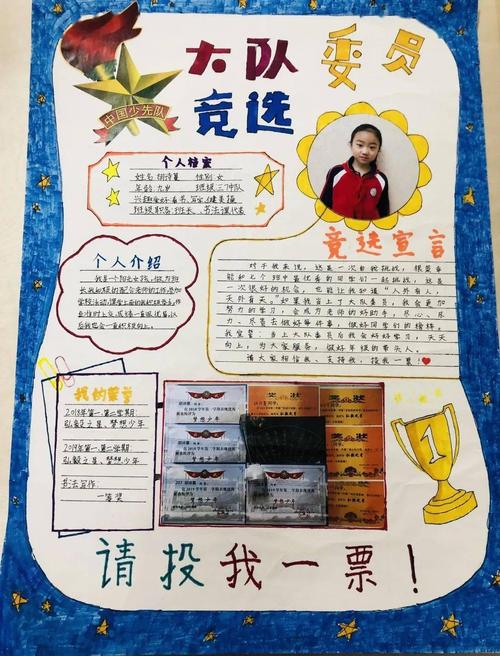 大队委员
竞选
中国少先队
个人档案
性别:女
年龄:九岁
兴趣爱好:看书、写字、健美操
班级职务:班长、书法课代表
个人介绍
我是个阳光女孩,做为班
长我积极的配合老师的工作,参加
学校活动,课堂上面我积极举手,作
业准时上交,成绩一直很优异,以
后我也会一直积极向上。
竞选宣言
对于我来说,这是一次自我挑战,很荣幸
能和七个班中最优秀的同学们一起挑战,这是
一次很好的机会,也能让我知道“人外有人,
天外有天。”如果我当上了大队委员,我会更加
努力的学习,会成为老师的好助手,尽心、尽
力、尽责去做好每件事,做好同学们的榜样。
我宣誓:当上大队委员后我会好好学习,天天
向上,为大家服务,做好年级的带头人。
请大家相信我、支持我,投我一票!
我的荣誉
2018年第一、第二学期:
弘毅之星、梦想少年
2019年第一、第二学期:
弘毅之星、梦想少年
书法写作:
一等奖
奖状
梦想少年
1
请投我一票!